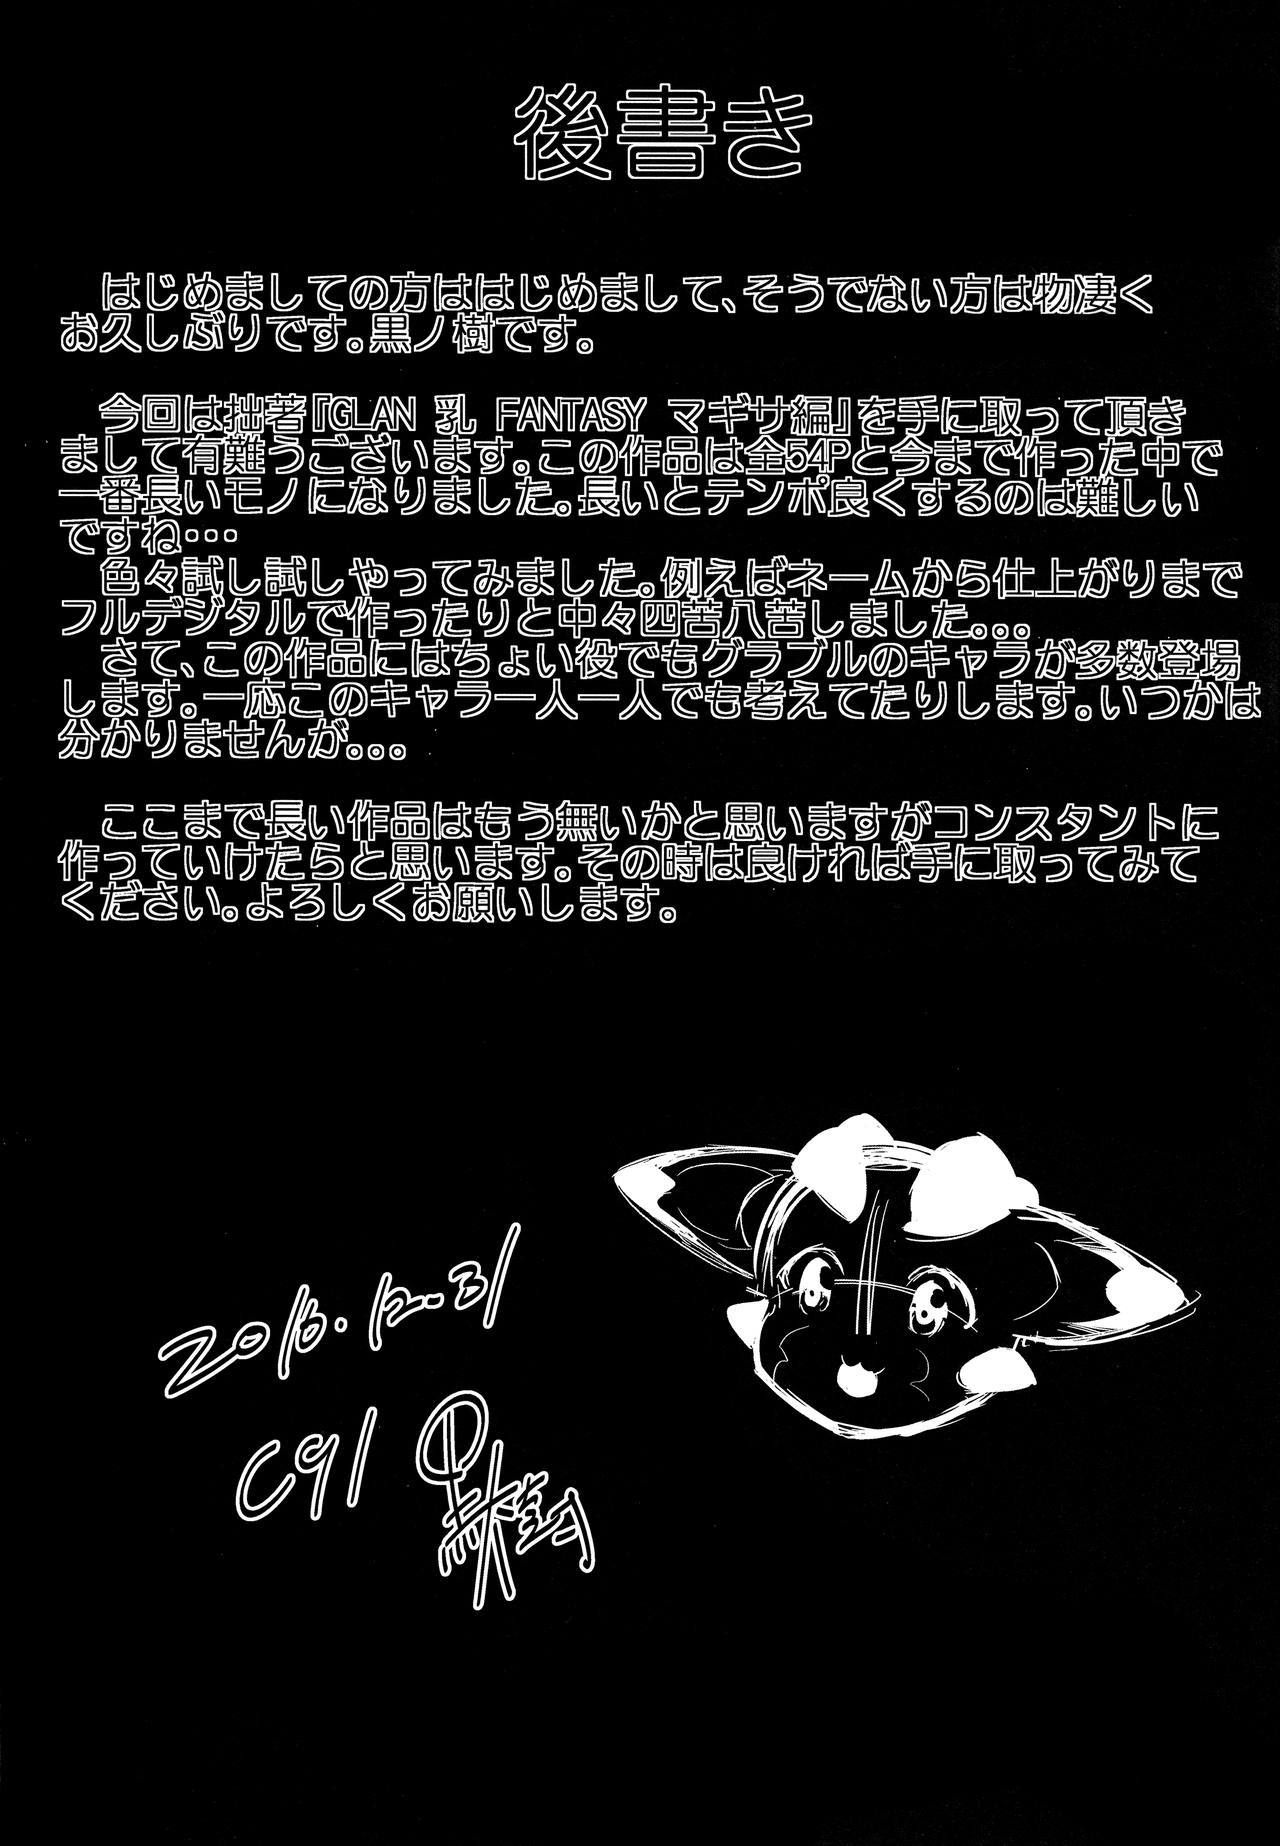 後書き
はじめましての方ははじめまして、そうでない方は物凄く
お久しぶりです。黒ノ樹です。
今回は拙著『GLAN 乳 FANTASY マギサ編』を手に取って頂き
まして有難うございます。この作品は全54Pと今まで作った中で
一番長いモノになりました。長いとテンポ良くするのは難しい
ですね・・・
色々試し試しやってみました。例えばネームから仕上がりまで
フルデジタルで作ったりと中々四苦八苦しました。。。
さて、この作品にはちょい役でもグラブルのキャラが多数登場
します。一応このキャラ一人一人でも考えてたりします。いつかは
分かりませんが。。。
ここまで長い作品はもう無いかと思いますがコンスタントに
作っていけたらと思います。その時は良ければ手に取ってみて
ください。よろしくお願いします。
2016.12.31
C91 黒ノ樹